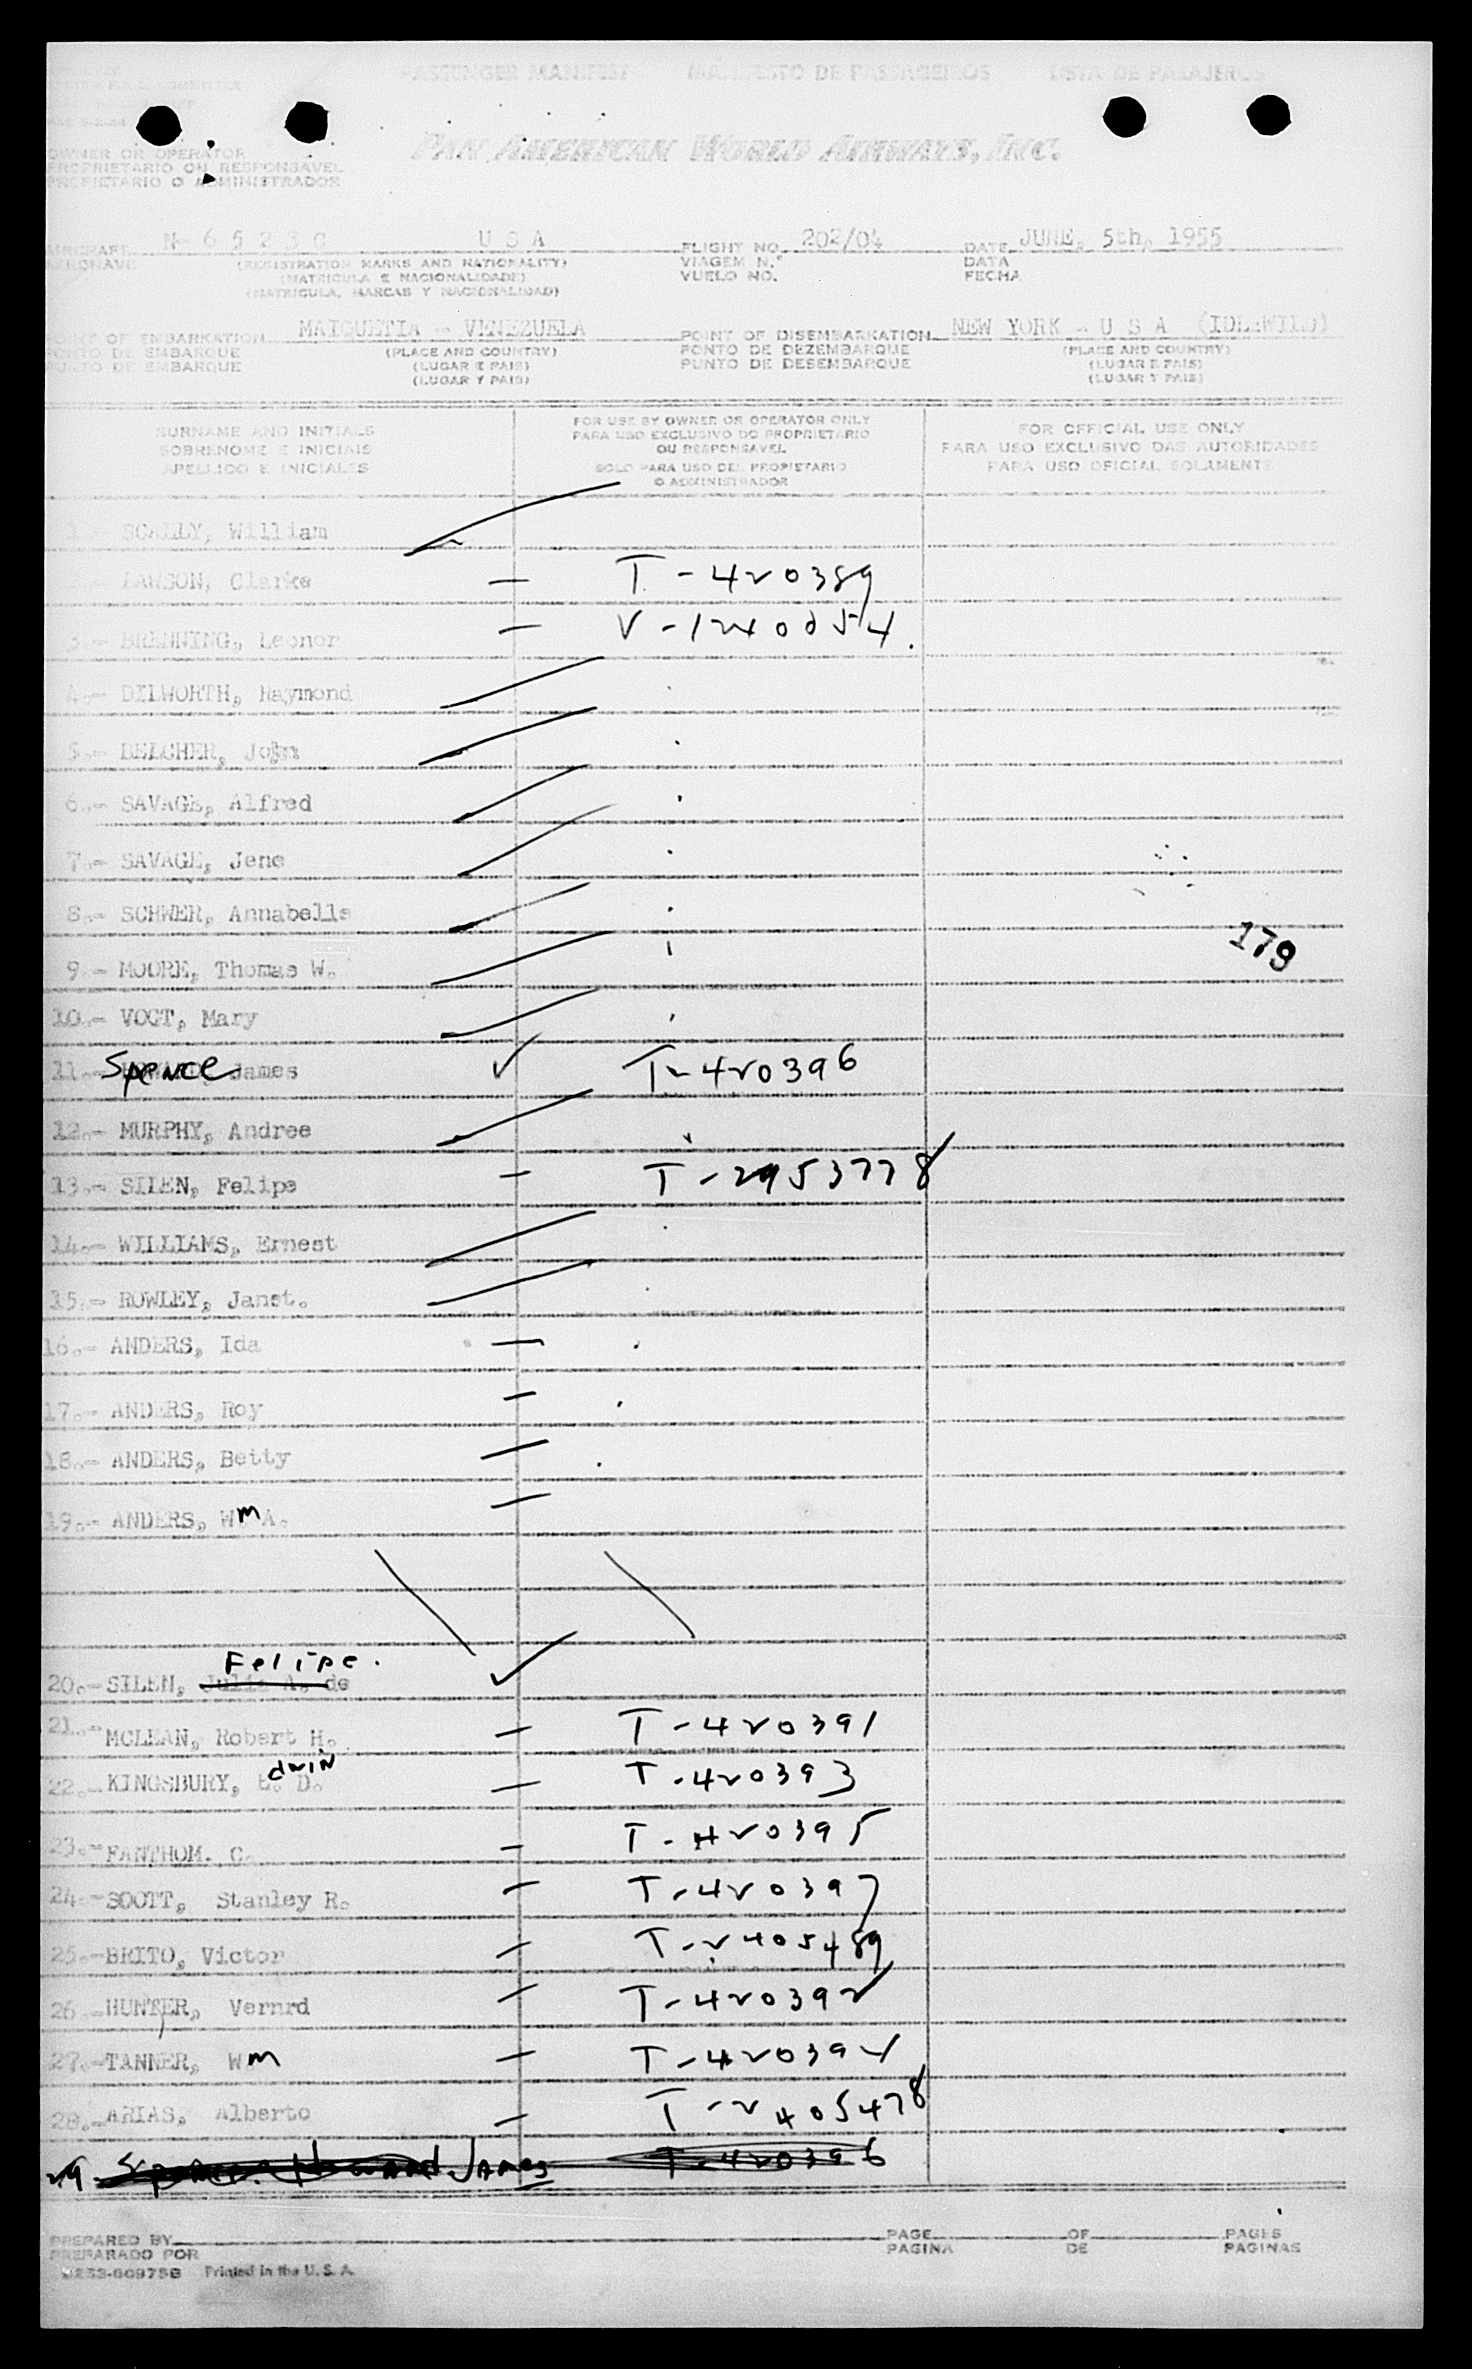 PASSENGER MANIFEST MANIFESTO DE PASSAGEIROS LISTA DE PASAJEROS
PAN AMERICAN WORLD AIRWAYS, INC.
OWNER OR OPERATOR
PROPRIETARIO OU RESPONSAVEL
PROPIETARIO O ADMINISTRADOR
AIRCRAFT N- 6 5 2 3 C U S A FLIGHT NO. 202/04 DATE JUNE, 5th, 1955
AERONAVE (REGISTRATION MARKS AND NATIONALITY) VIAGEM N.º DATA
(MATRICULA E NACIONALIDADE) VUELO NO. FECHA
(MATRICULA, MARCAS Y NACIONALIDAD)
POINT OF EMBARKATION MAIQUETIA - VENEZUELA POINT OF DISEMBARKATION NEW YORK - U S A (IDLEWILD)
PONTO DE EMBARQUE (PLACE AND COUNTRY) PONTO DE DEZEMBARQUE (PLACE AND COUNTRY)
PUNTO DE EMBARQUE (LUGAR E PAIS) PUNTO DE DESEMBARQUE (LUGAR E PAIS)
(LUGAR Y PAIS) (LUGAR Y PAIS)
SURNAME AND INITIALS
SOBRENOME E INICIAIS
APELLIDO E INICIALES
FOR USE BY OWNER OR OPERATOR ONLY
PARA USO EXCLUSIVO DO PROPRIETARIO
OU RESPONSAVEL
SOLO PARA USO DEL PROPIETARIO
O ADMINISTRADOR
FOR OFFICIAL USE ONLY
PARA USO EXCLUSIVO DAS AUTORIDADES
PARA USO OFICIAL SOLAMENTE
1.- SCALLY, William
2.- LAWSON, Clarke — T-420389
3.- BRENNING, Leonor — V-1240054.
4.- DILWORTH, Raymond
5.- BELCHER, John
6.- SAVAGE, Alfred
7.- SAVAGE, Jene
8.- SCHWER, Annabelle
179
9.- MOORE, Thomas W.
10.- VOGT, Mary
11.- Spence James ✓ T-420396
12.- MURPHY, Andree
13.- SILEN, Felipe — T-2953778
14.- WILLIAMS, Ernest
15.- ROWLEY, Janet.
16.- ANDERS, Ida —
17.- ANDERS, Roy —
18.- ANDERS, Betty —
19.- ANDERS, Wm A. —
Felipe.
20.- SILEN, Julia A. de ✓
21.- MCLEAN, Robert H. — T-420391
dwin
22.- KINGSBURY, E. D. — T-420393
23.- FANTHOM. C. — T-420395
24.- SCOTT, Stanley R. — T-420397
25.- BRITO, Victor — T-2405489
26.- HUNTER, Vernrd — T-420392
27.- TANNER, Wm — T-420394
28.- ARIAS, Alberto — T-2405478
29 Spence. Howard James T-420396
PREPARED BY PAGE OF PAGES
PREPARADO POR PAGINA DE PAGINAS
Printed in the U. S. A.